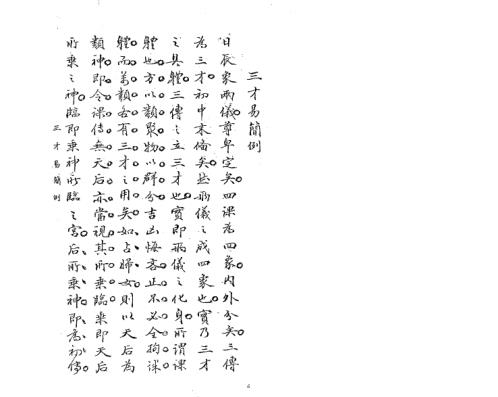 三才易簡例
日辰象兩儀。尊卑定矣。四課為四象。內外分矣。三傳
為三才。初中末備矣。然兩儀之成四象也。實乃三才
之具體。三傳之立三才也。實即兩儀之化身。所謂課
體也。方以類聚。物以群分。吉凶悔吝。止不必令拘課
體。而萬類各有三才之用矣。如占婦女。則以天后為
類神。即令課傳無天后。亦當視其所乘臨。乘即天后
所乘之神。臨即乘神所臨之宮。后所乘神即為初傳。
三才易簡例